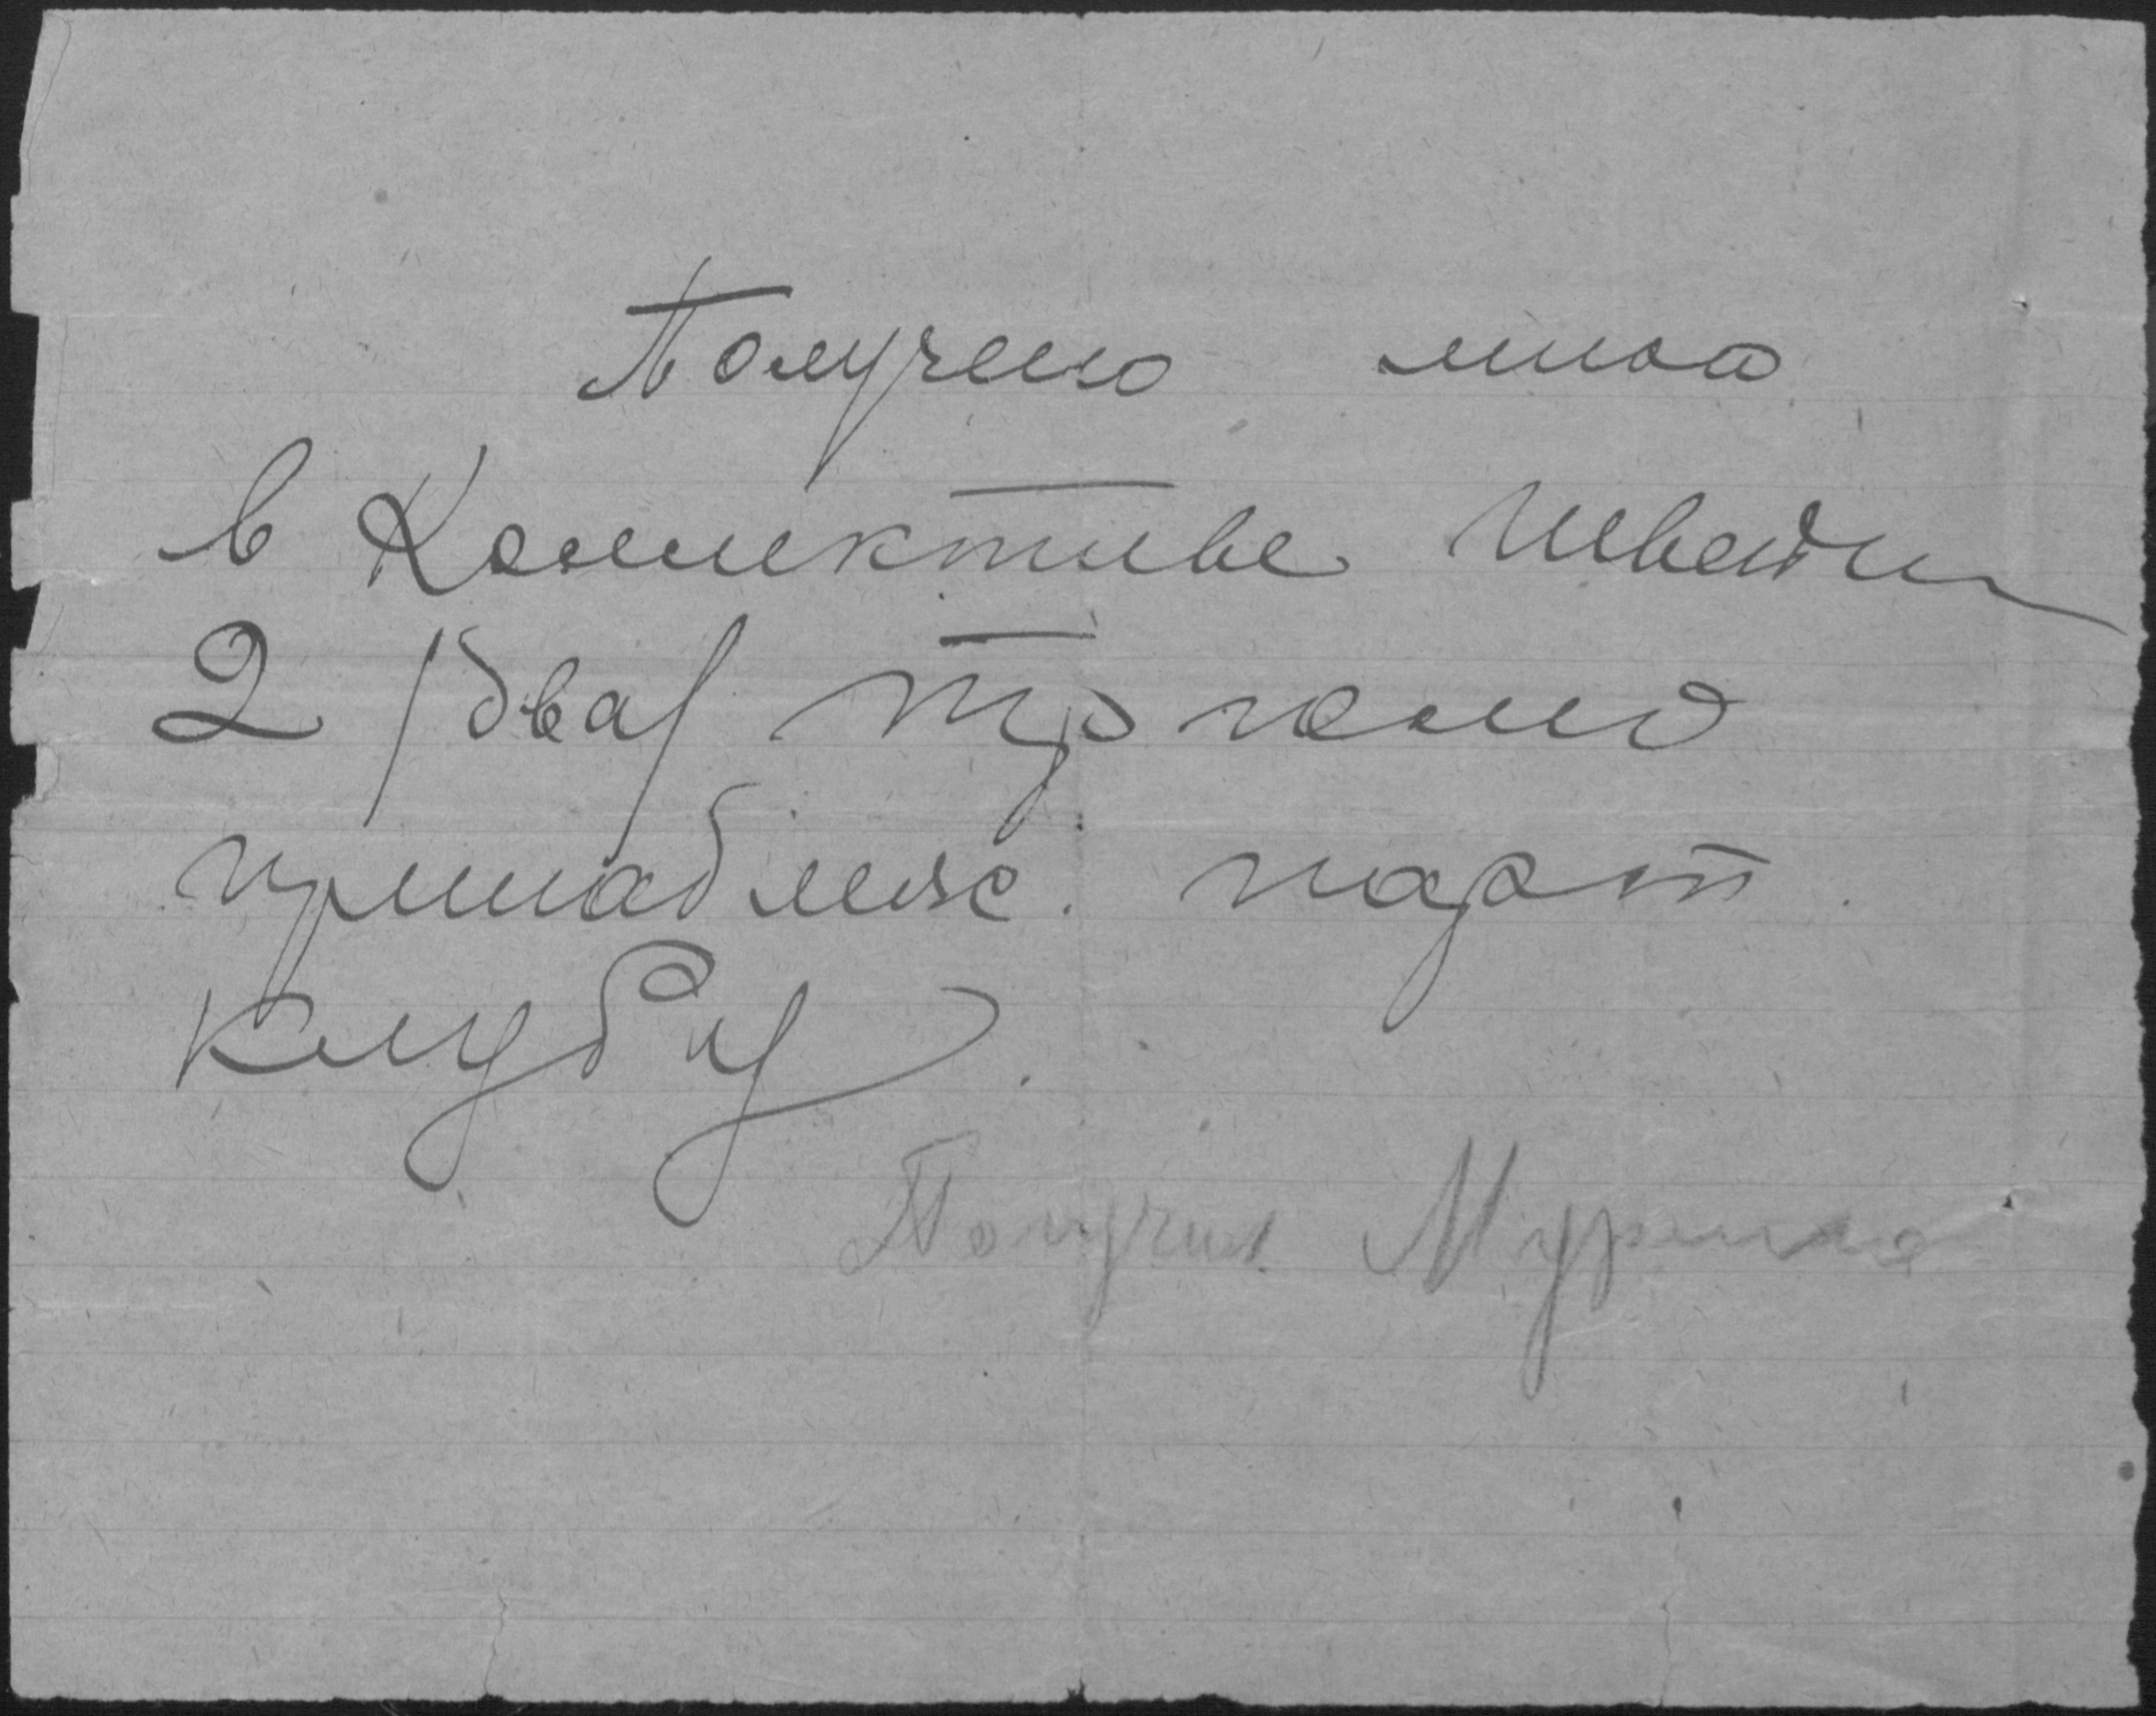 Получено мною
в Коллективе Шведи
2 /два/ трюмо
принадлеж. парт.
клубу.
Получил